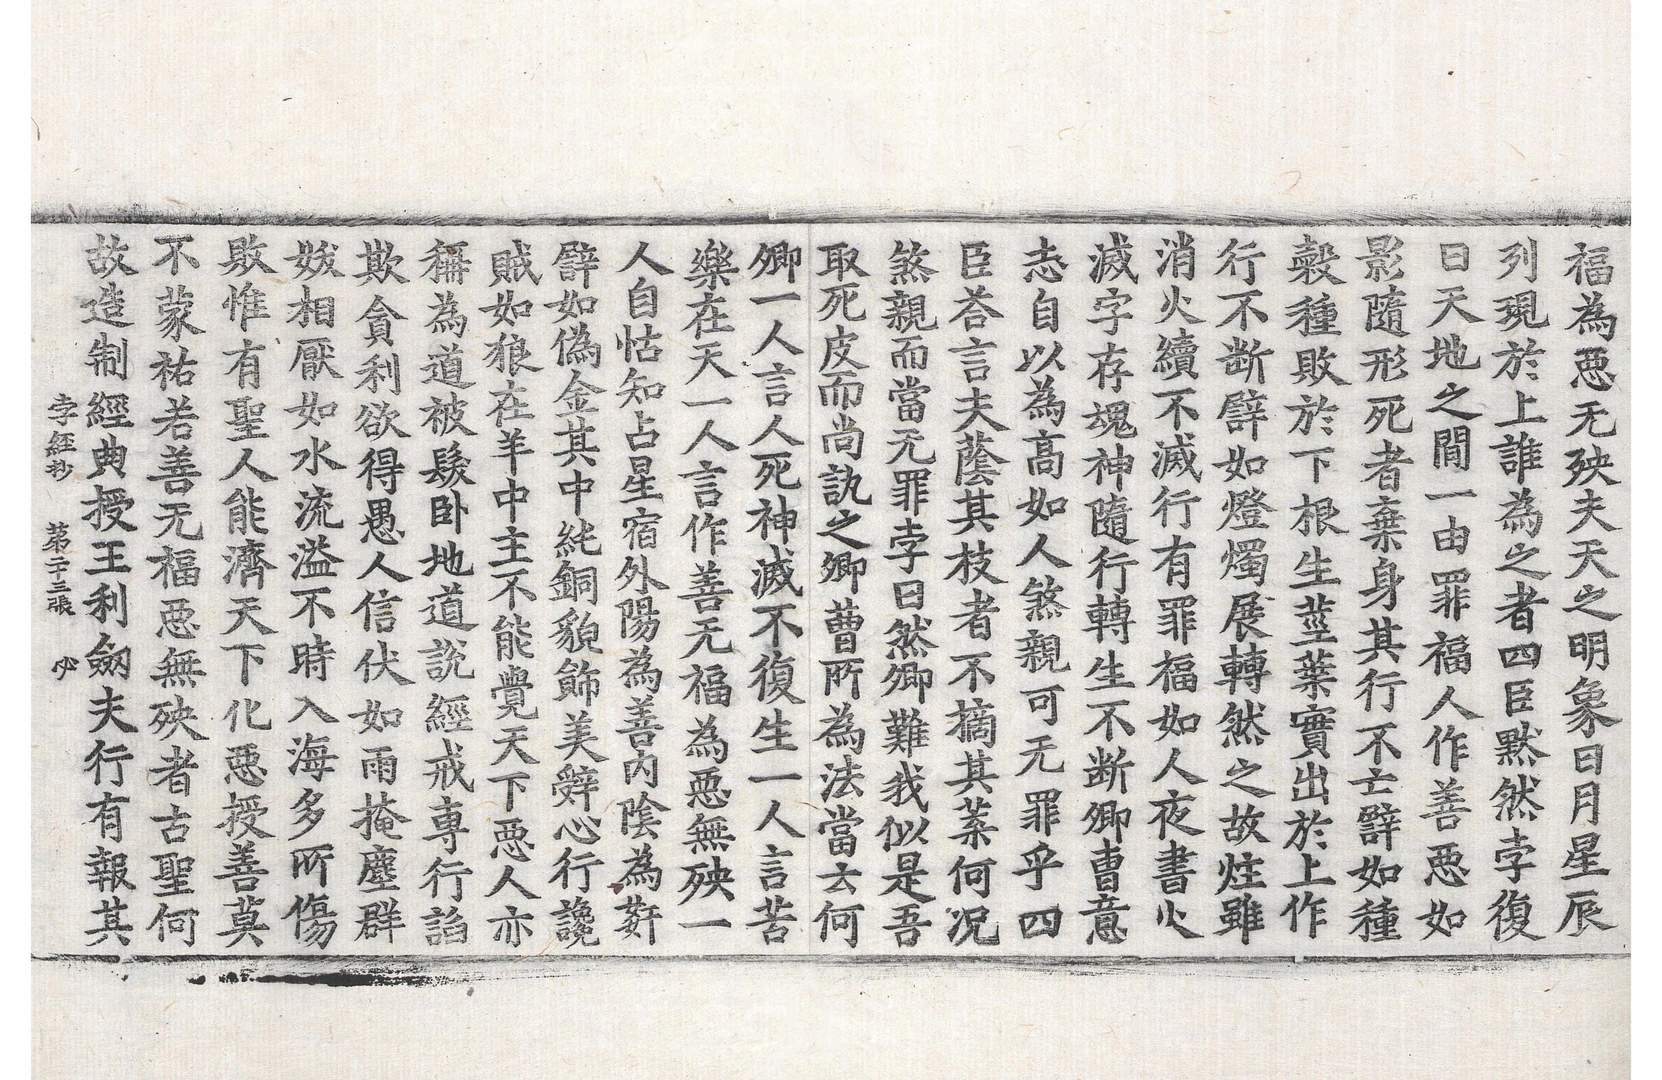 福為惡无殃夫天之明象日月星辰
列現於上誰為之者四臣黙然孛復
曰天地之間一由罪福人作善惡如
影隨形死者棄身其行不亡譬如種
糓種敗於下根生莖葉實出於上作
行不断譬如燈燭展轉然之故炷雖
消火續不滅行有罪福如人夜書火
滅字存魂神隨行轉生不断卿曹意
志自以為高如人煞親可无罪乎四
臣荅言夫蔭其枝者不摘其菓何况
煞親而當无罪孛曰然卿難我似是吾
取死皮而尚訙之卿曹所為法當云何
卿一人言人死神滅不復生一人言苦
樂在天一人言作善无福為惡無殃一
人自怙知占星宿外陽為善內陰為姧
譬如偽金其中純銅貌飾美辝心行讒
賊如狼在羊中主不能覺天下惡人亦
稱為道被髮卧地道說經戒專行諂
欺貪利欲得愚人信伏如雨掩塵群
妭相厭如水流溢不時入海多所傷
敗惟有聖人能濟天下化惡授善莫
不蒙祐若善无福惡無殃者古聖何
故造制經典授王利劒夫行有報其
孛經抄　第二十三張